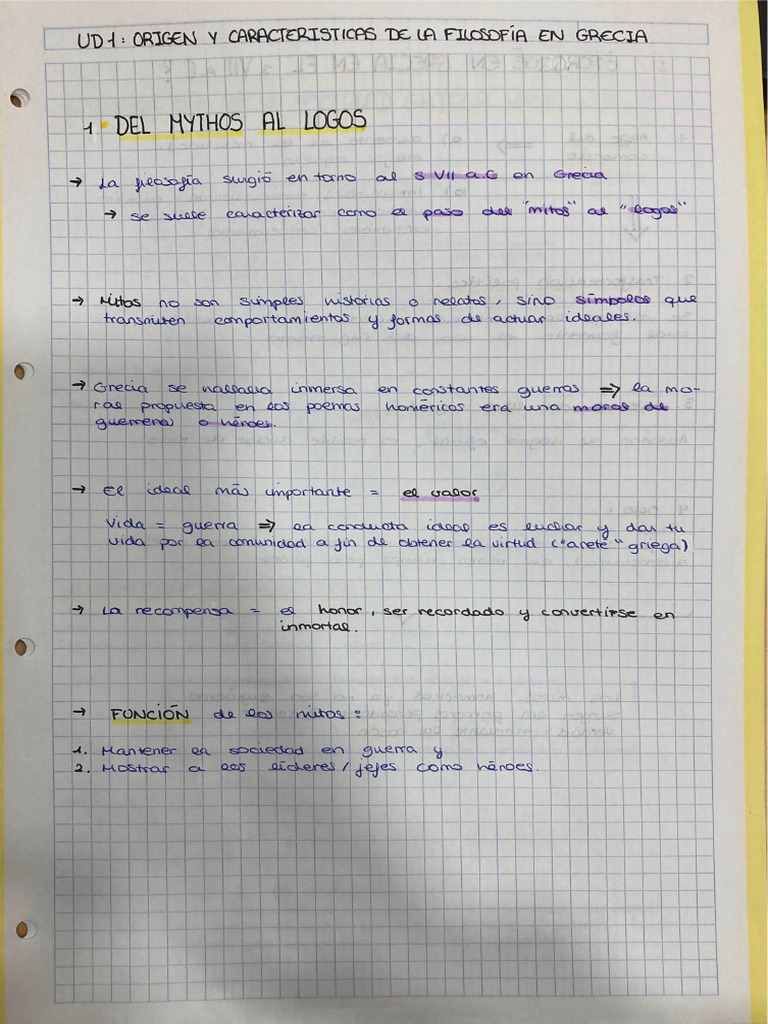 UD1: ORIGEN Y CARACTERISTICAS DE LA FILOSOFÍA EN GRECIA
1. DEL MYTHOS AL LOGOS
→ La filosofía surgió en torno al s VII a.C en Grecia
→ se suele caracterizar como el paso del "mitos" al "logos"
→ Mitos no son simples historias o relatos, sino símbolos que
transmiten comportamientos y formas de actuar ideales.
→ Grecia se hallaba inmersa en constantes guerras ⇒ la mo-
ral propuesta en los poemas homéricos era una moral de
guerreros o héroes.
→ El ideal más importante = el valor
Vida = guerra ⇒ la conducta ideal es luchar y dar tu
vida por la comunidad a fin de obtener la virtud ("areté" griega)
→ La recompensa = el honor, ser recordado y convertirse en
inmortal.
→ FUNCIÓN de los mitos:
1. Mantener la sociedad en guerra y
2. Mostrar a los líderes/jefes como héroes.